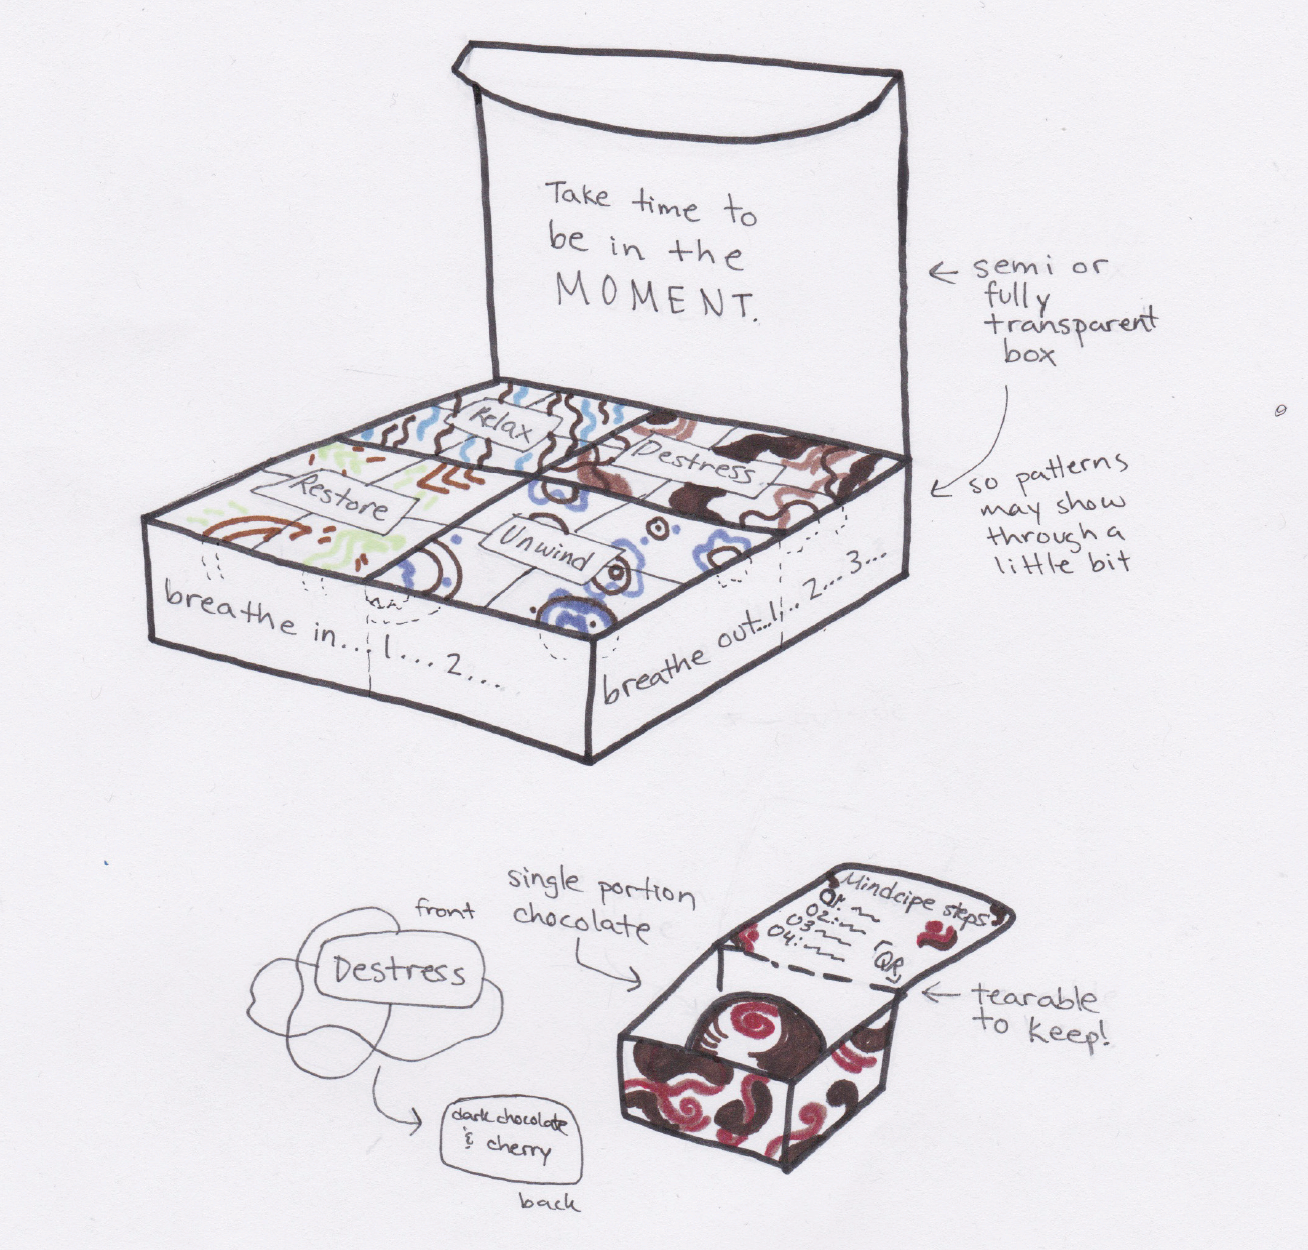 Take time to
be in the
MOMENT.
← semi or
fully
transparent
box
so patterns
may show
through a
little bit
Relax
Destress
Restore
Unwind
breathe in... 1... 2...
breathe out... 1... 2... 3...
single portion
chocolate
Mindcipe steps
01:
02:
03
04:
QR
← tearable
to keep!
front
Destress
dark chocolate
& cherry
back